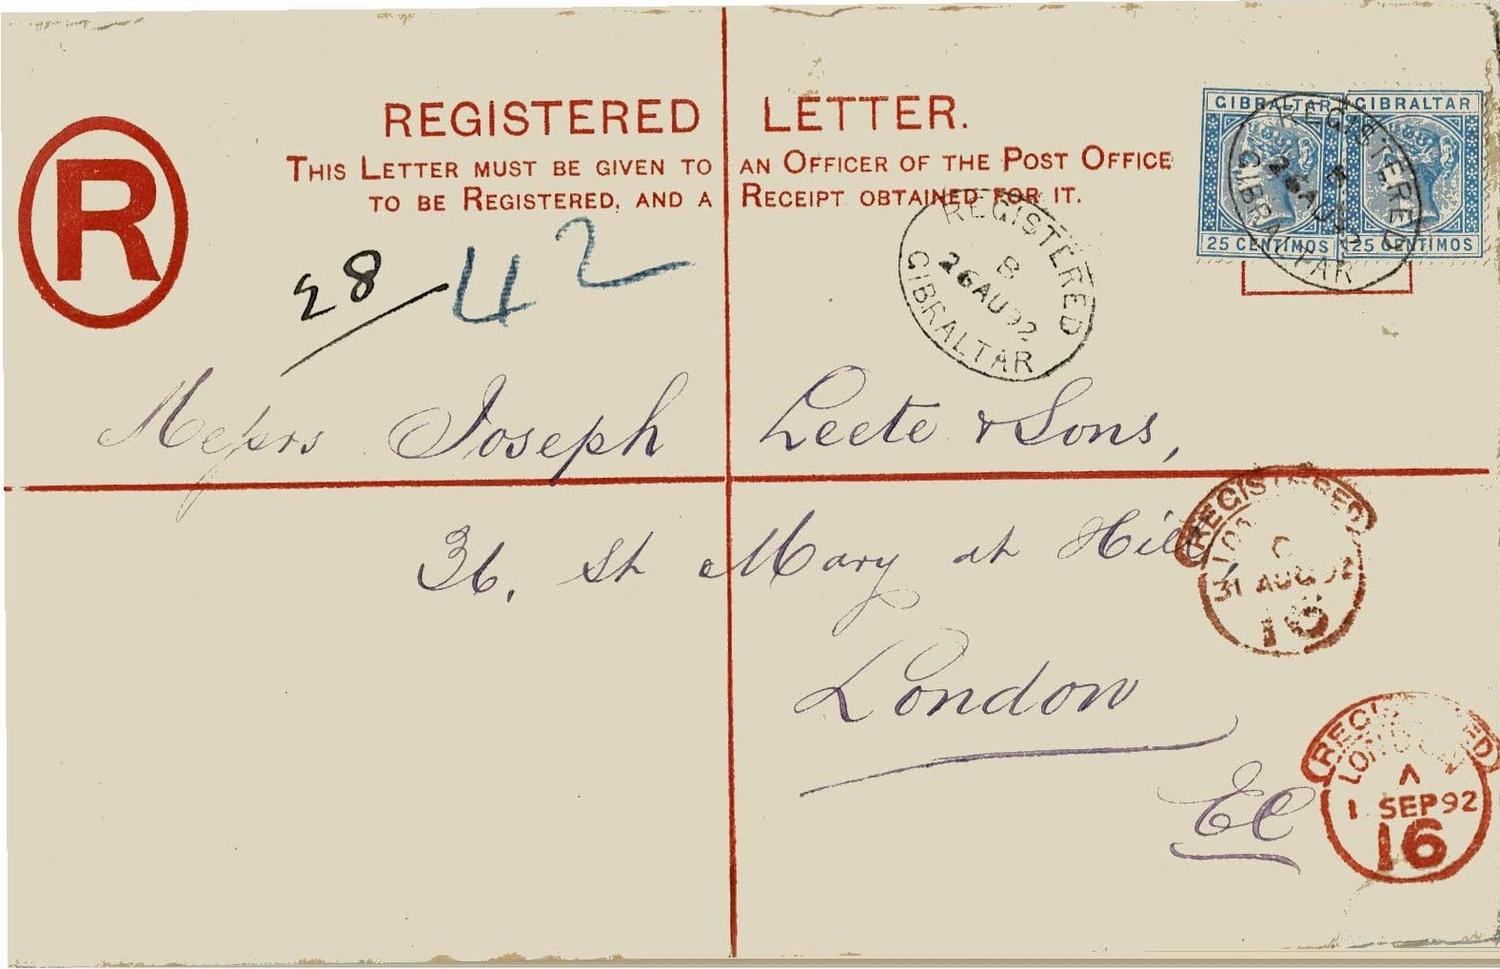 REGISTERED LETTER.
THIS LETTER MUST BE GIVEN TO AN OFFICER OF THE POST OFFICE
TO BE REGISTERED, AND A RECEIPT OBTAINED FOR IT.
R
GIBRALTAR
25 CENTIMOS
GIBRALTAR
25 CENTIMOS
REGISTERED
26 AU 92
GIBRALTAR
REGISTERED
B
26 AU 92
GIBRALTAR
28
42
Messrs Joseph Leete & Sons,
36, St Mary at Hill,
London
EC
REGISTERED
LONDON
C
31 AUG 92
16
REGISTERED
LONDON
A
1 SEP 92
16